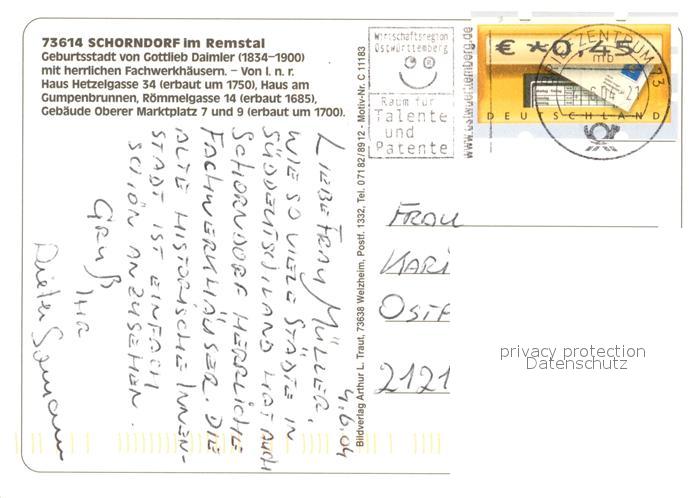 73614 SCHORNDORF im Remstal
Geburtsstadt von Gottlieb Daimler (1834–1900)
mit herrlichen Fachwerkhäusern. – Von l. n. r.
Haus Hetzelgasse 34 (erbaut um 1750), Haus am
Gumpenbrunnen, Römmelgasse 14 (erbaut 1685),
Gebäude Oberer Marktplatz 7 und 9 (erbaut um 1700).
4.6.04
LIEBE FRAU MÜLLER,
WIE SO VIELE STÄDTE IN
SÜDDEUTSCHLAND HAT AUCH
SCHORNDORF HERRLICHE
FACHWERKHÄUSER. DIE
ALTE HISTORISCHE INNEN-
STADT IST EINFACH
SCHÖN ANZUSEHEN.
GRUß
IHR
Dieter
Bildverlag Arthur L. Traut, 73638 Welzheim, Postf. 1332, Tel. 07182/8912 - Motiv-Nr. C 11183
Wirtschaftsregion
Ostwürttemberg
Raum für
Talente
und
Patente
www.ostwuerttemberg.de
€ *0,45
DEUTSCHLAND
BRIEFZENTRUM 73
mb
6.04-21
FRAU
KARI
OSTP
2121
privacy protection
Datenschutz